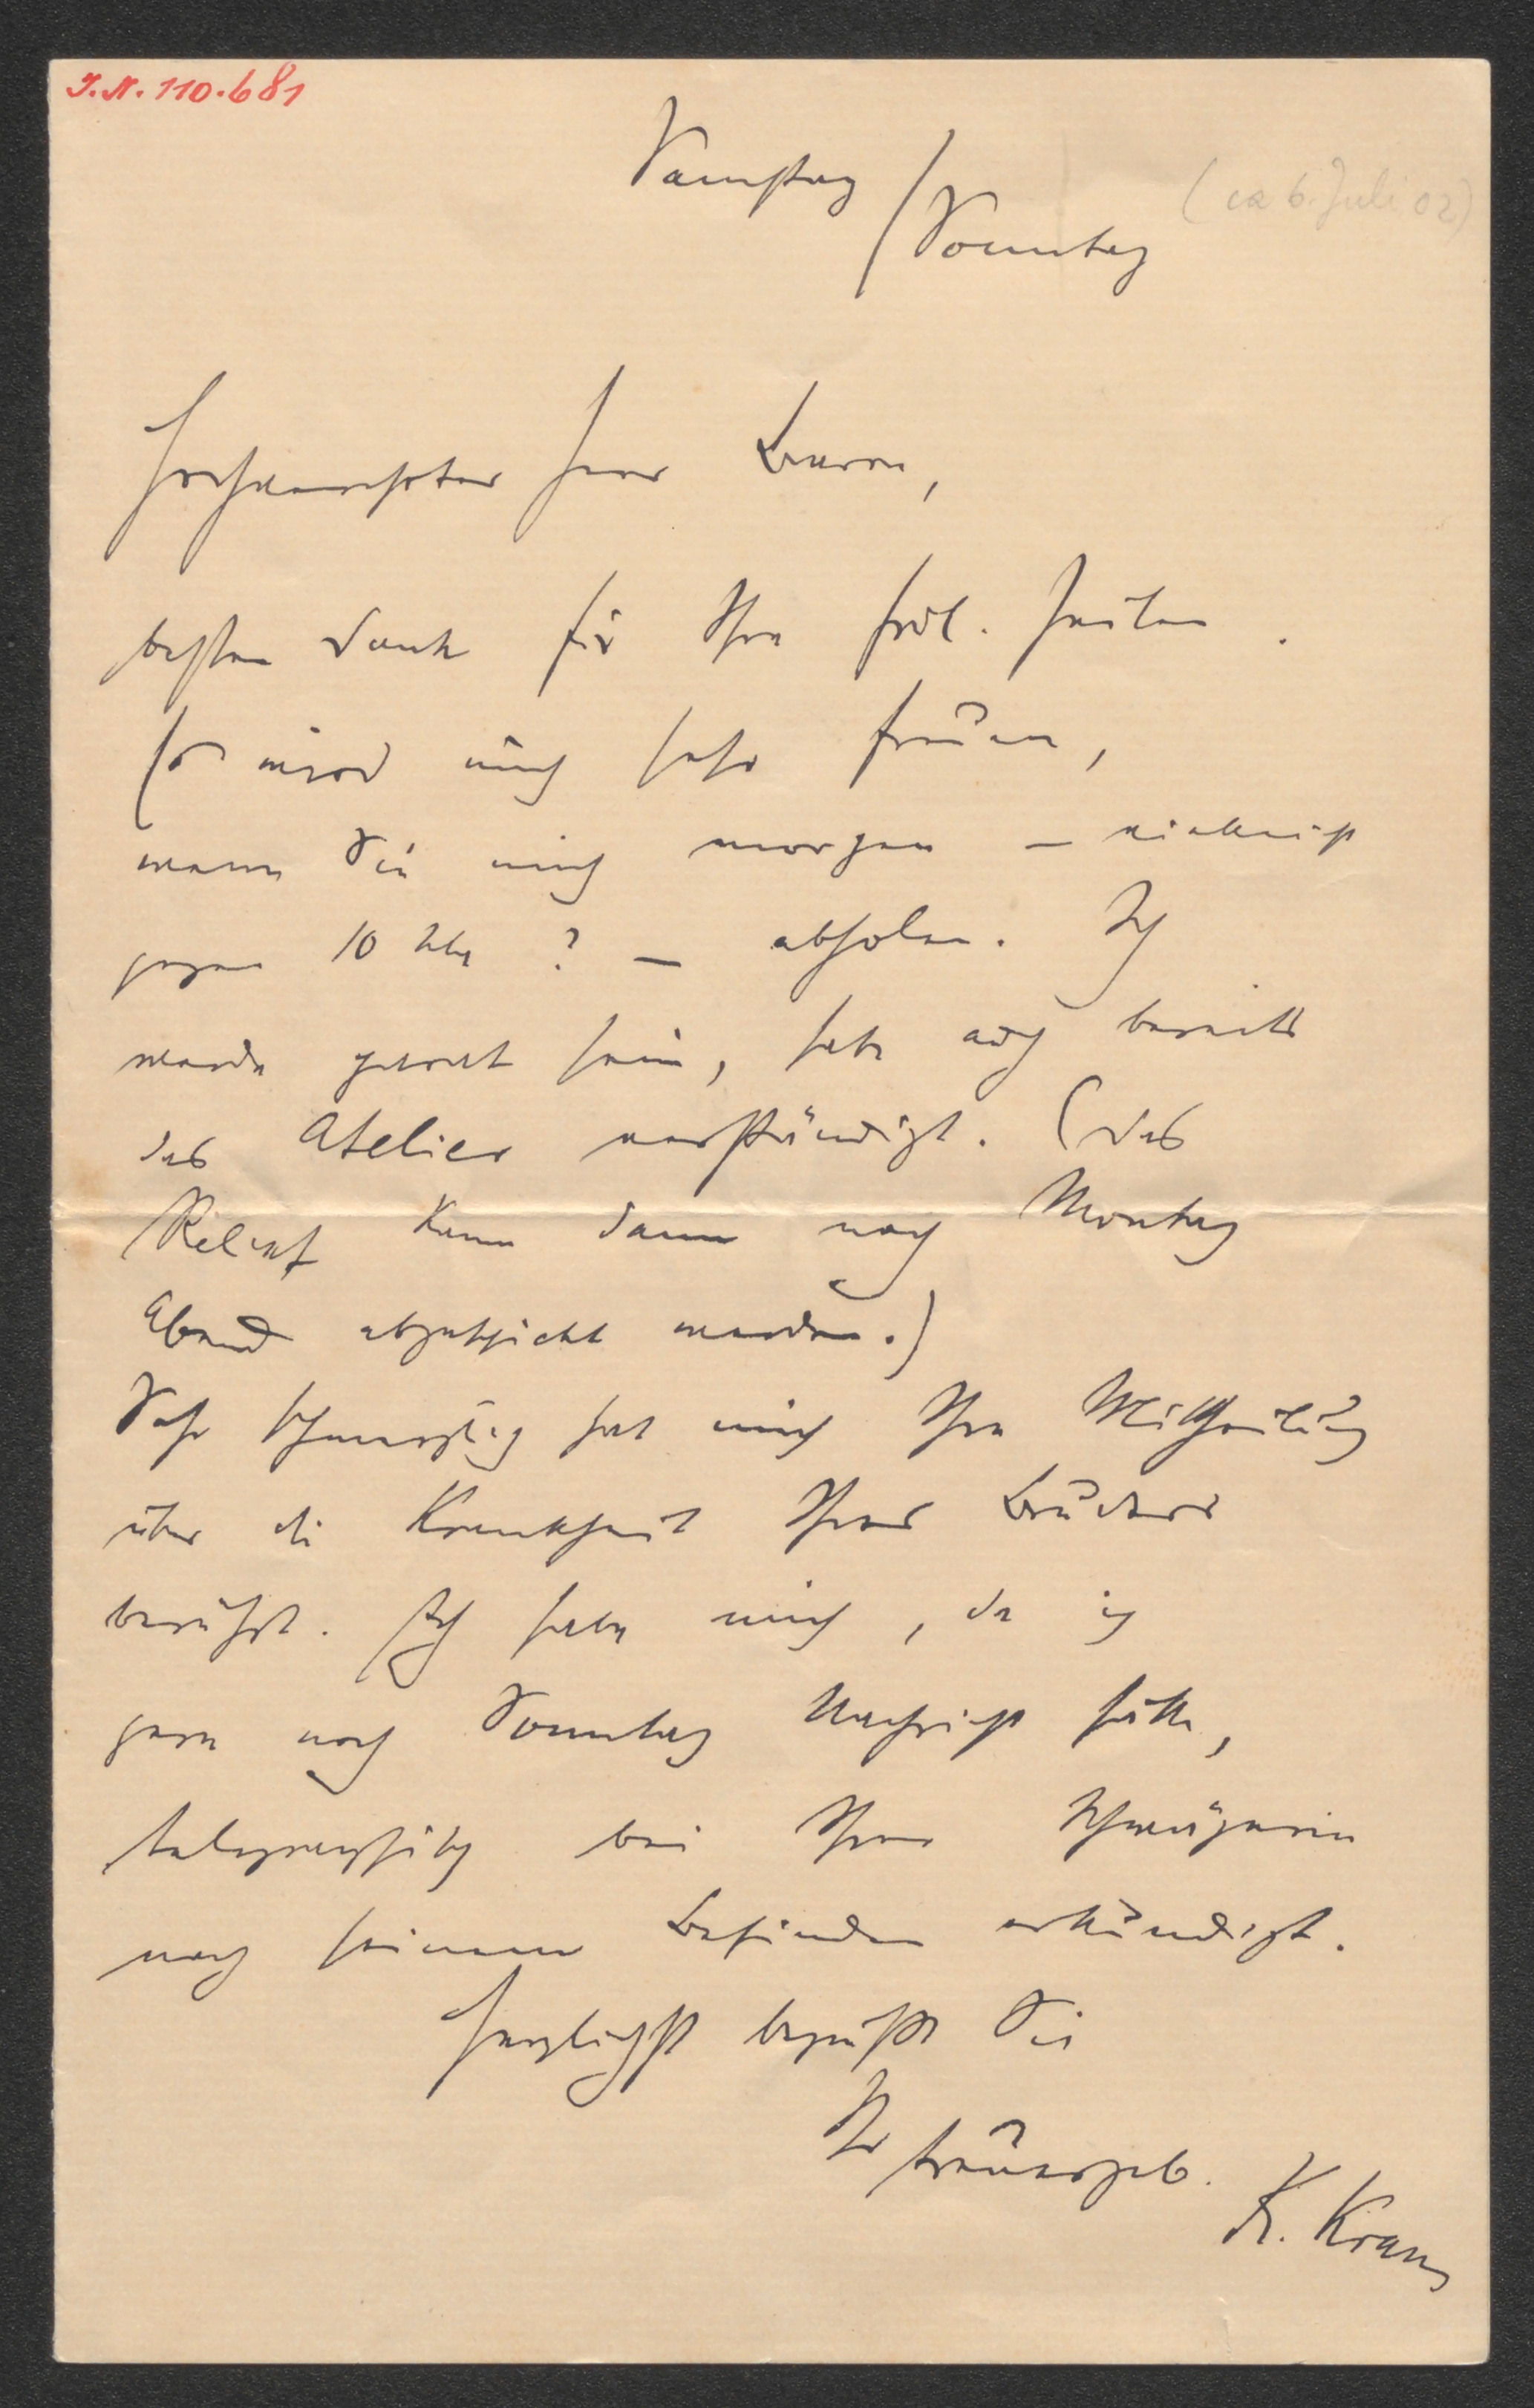 I.N. 110.681
Samstag /
(ca 6. Juli 02)
/ Sonntag
Hochverehrter Herr Baron,
besten Dank für Ihre frdl. Zeilen.
Es wird mich sehr freuen,
wenn Sie mich morgen – vielleicht
gegen 10 Uhr ? – abholen. Ich
werde geweckt sein, habe auch bereits
das Atelier verständigt. (Das
Relief kann dann noch Montag
Abend abgeschickt werden.)
Sehr schmerzlich hat mich Ihre Mittheilung
über die Krankheit Ihres Bruders
berührt. Ich habe mich, da ich
gern noch Sonntag Nachricht hätte,
telegraphisch bei Ihrer Schwägerin
nach seinem Befinden erkundigt.
Herzlichst begrüßt Sie
Ihr treuergeb.
K. Kraus